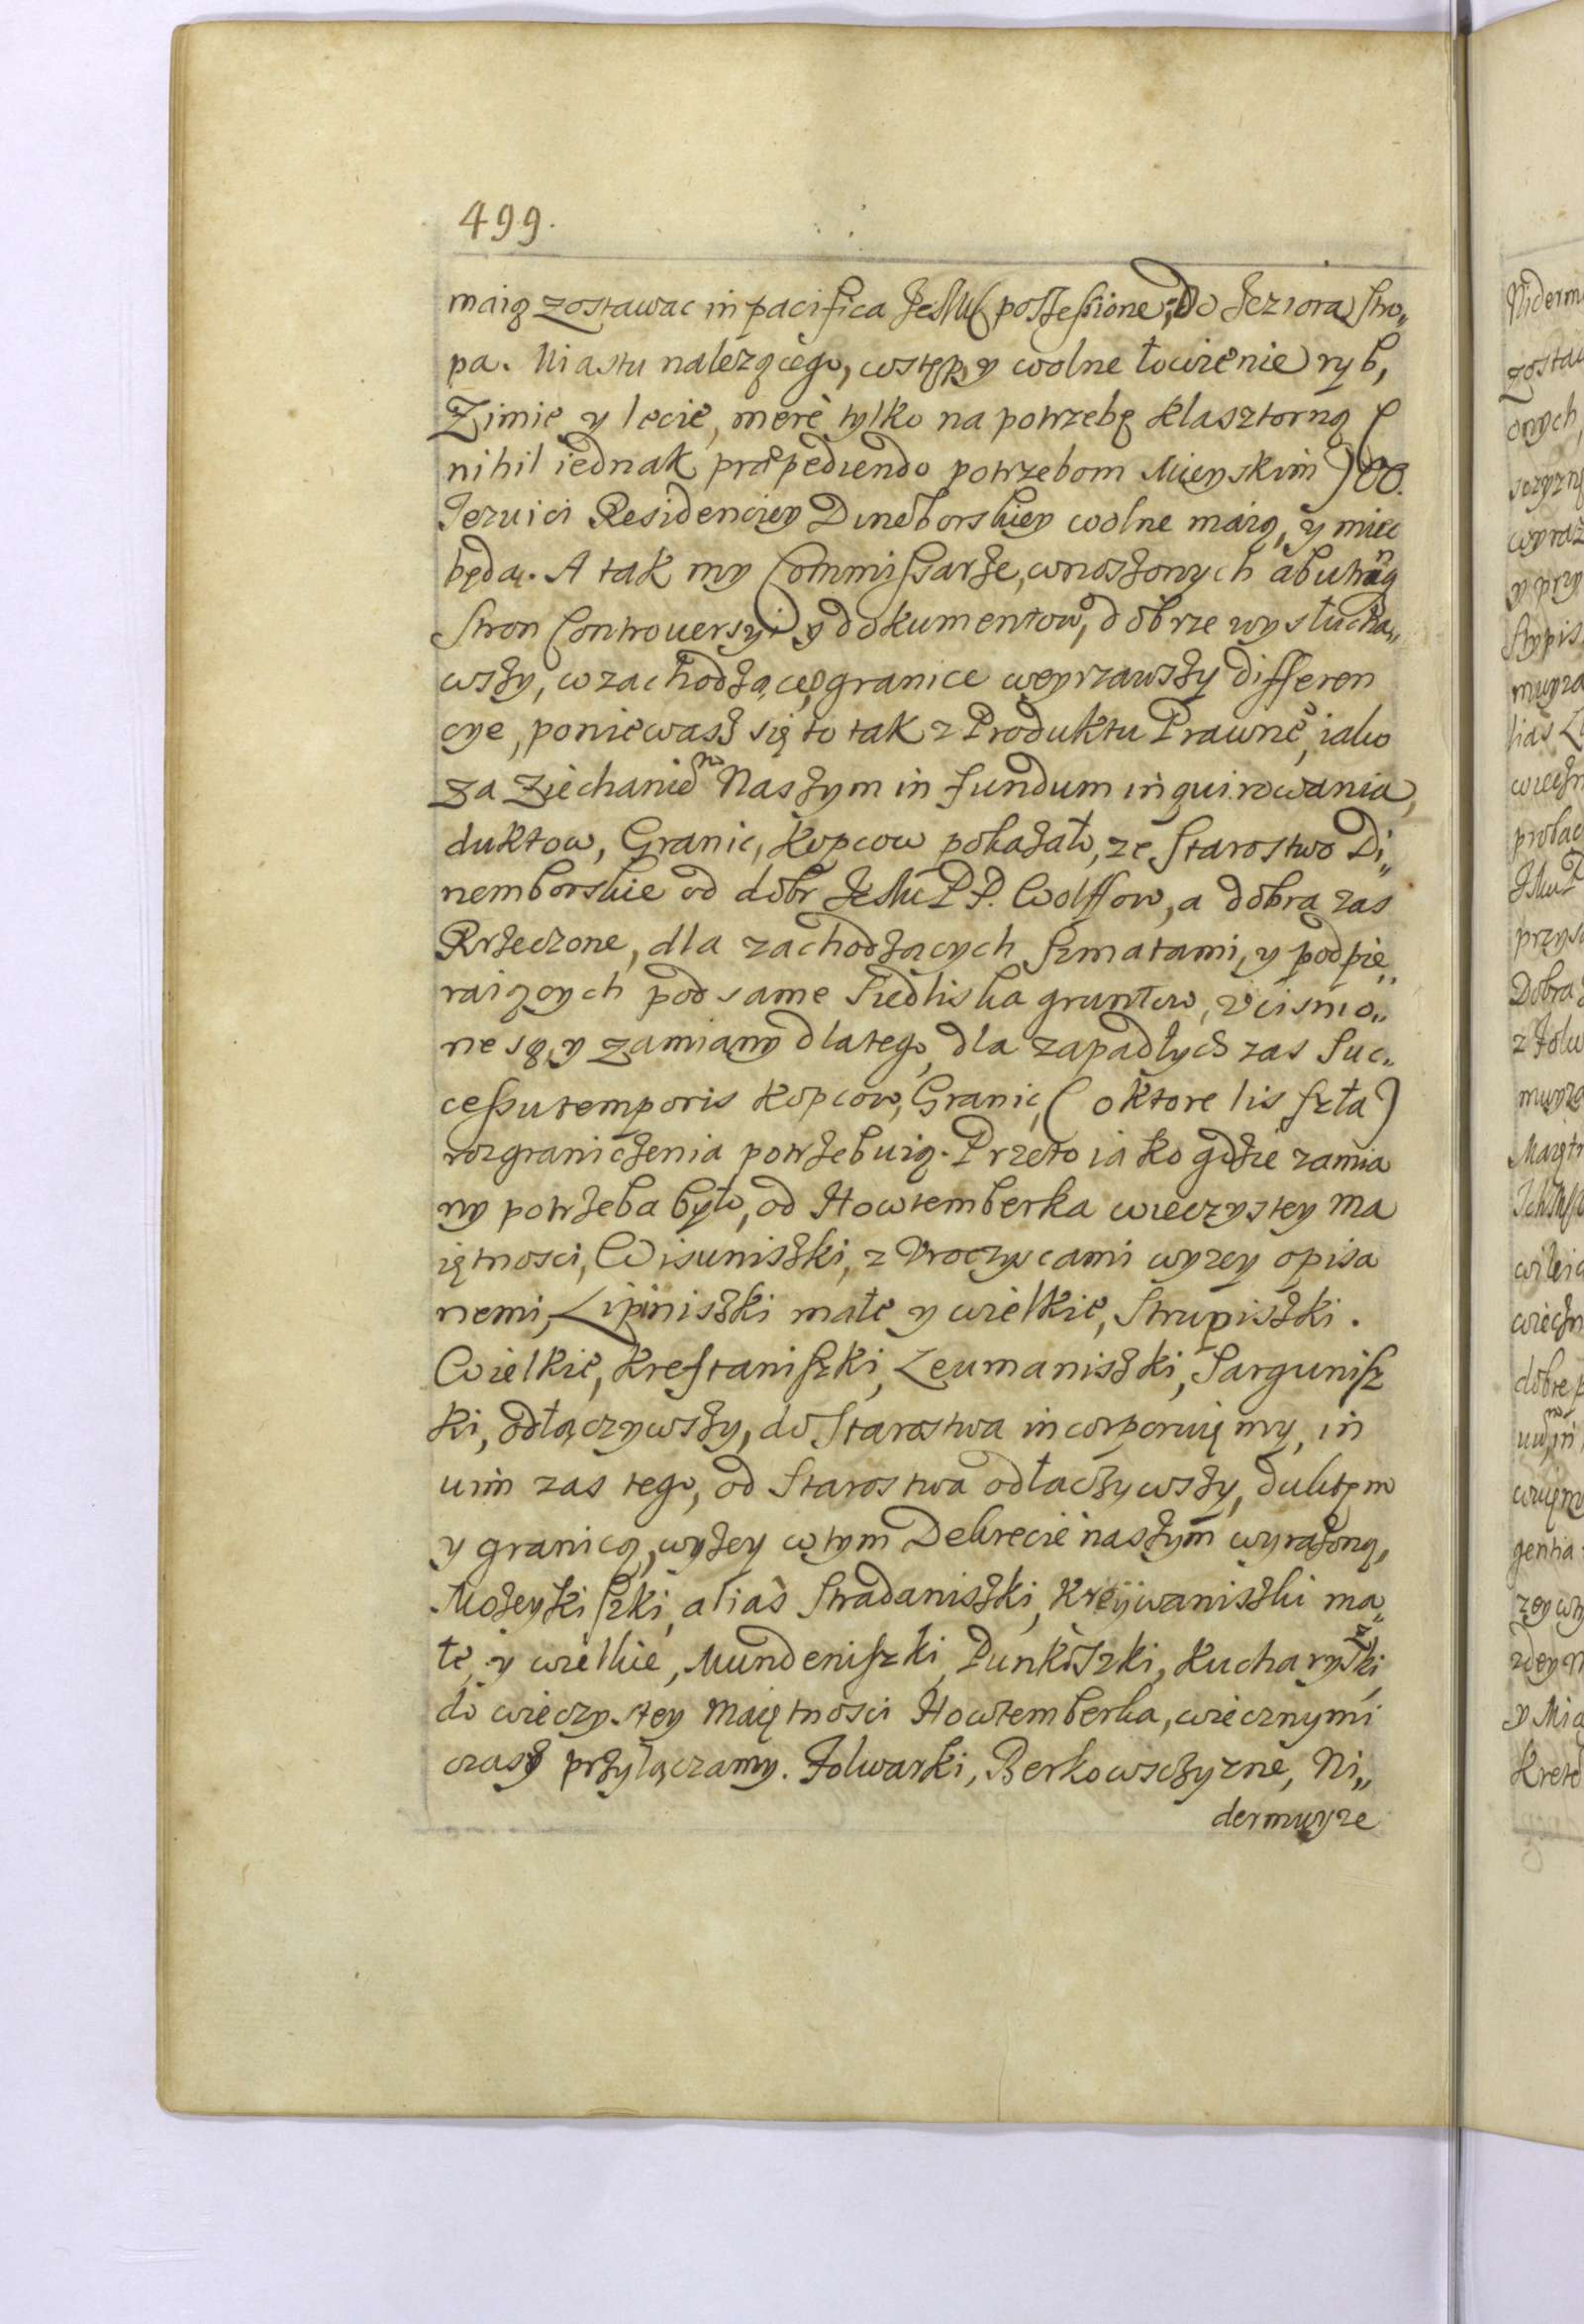 499.
maią zostawac in pacifica JchMć possessione; Do Jeziora Stro„
pa. Miastu nalezącego, wstęp y wolne łowienie ryb,
Zimie y lecie, mere tylko na potrzebę klasztorną (
nihil iednak præpediendo potrzebom Mieyskim) OO.
Jezuici Residenciey Dineborskiey wolne maią, y miec
będą. A tak my Commissarze, wnoszonych abutrinq
Stron Controuersyi y dokumentow, dobrze wysłucha„
wszy, w zachodzące granice weyrzawszy differen
cye, poniewasz się to tak z Produktu Prawne, iako
za Ziechaniem Naszym in fundum inquirowania,
duktow, Granic, Kopcow pokazało, ze Starostwo Di„
nemborskie od dobr JchMć P.P. Wolffow, a dobra zas
Rzeczone, dla zachodzących Szmatami, y podpie„
raiących pod same Siedliska gruntow, vcisnio„
ne są, y zamiany dlatego, dla zapadłych zas Suc„
cessu temporis Kopcow, Granic, ( o ktore lis szła )
rozgraniczenia potrzebuią. Przeto iako gdzie zamia
ny potrzeba było, od Howtemberka wieczystey Ma
iętnosci, Wisuniszki, z Vroczyscami wyzey opisa
nemi, Lipiniszki małe y wielkie, Strupiszki.
Wielkie, Krestaniszki, Leumaniszki, Sargunisz
ki, odłączywszy, do Starostwa incorporuięmy, in
uim zas tego, od Starostwa odłaczywszy, duktęm
y granicą, wyżey w tym Dekrecie naszym wyrażoną,
Możeykiszki, alias Stradaniszki, Kreywaniszki ma„
łe, y wielkie, Mundeniszki, Punkiszki, Kucharyszki,
do wieczystey Maiętnosci Howtemberka, wiecznymi
czasy przyłączamy. Folwarki, Berkowsczyzne, Ni„
dermuyze